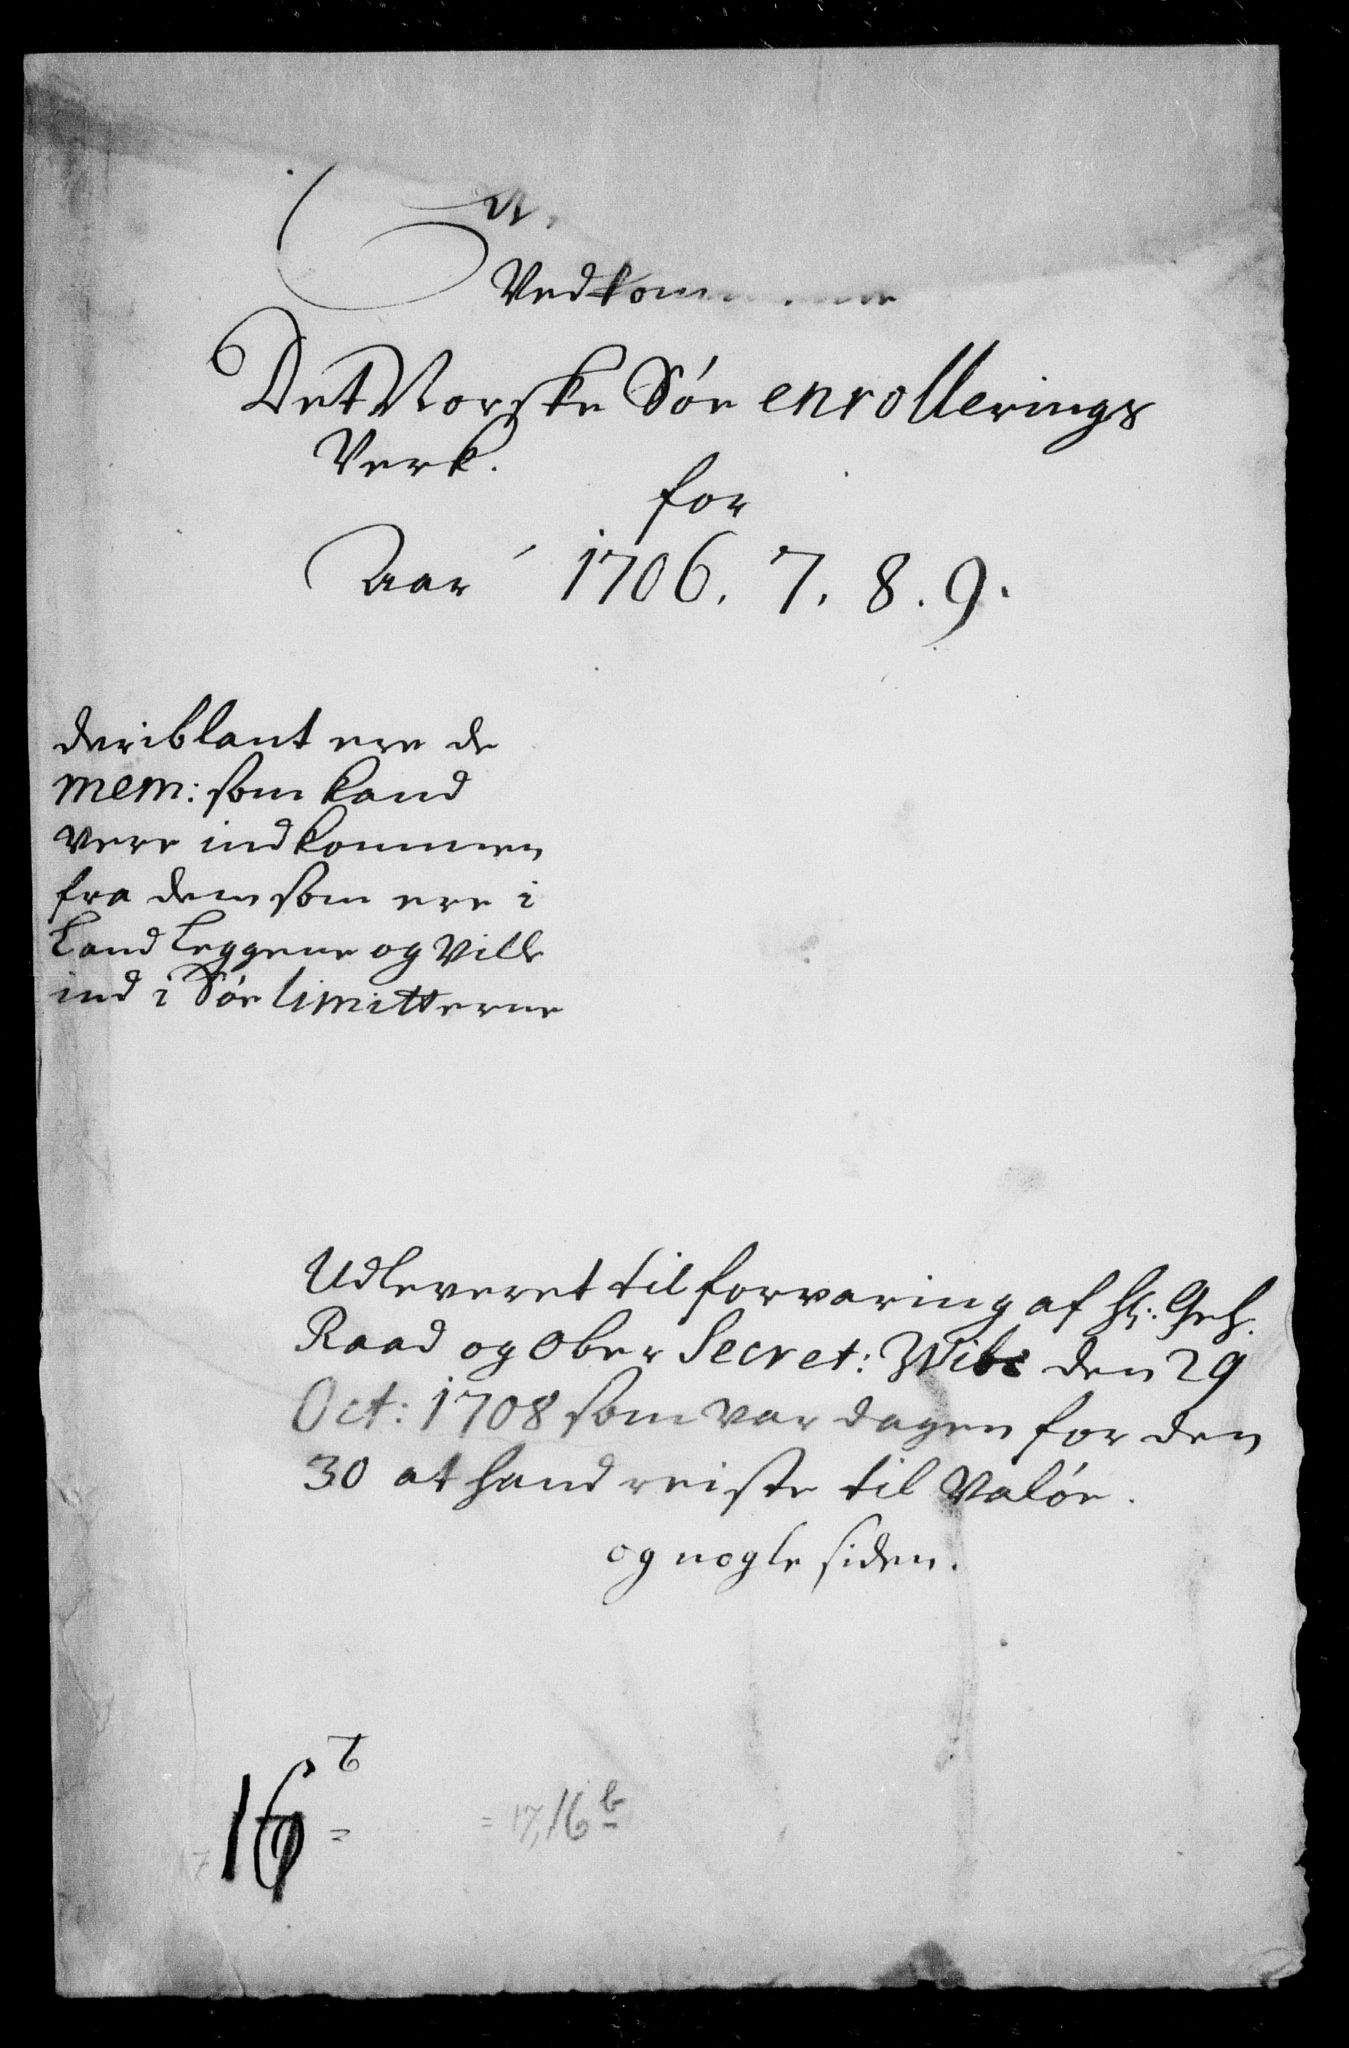 Vedkommende
Det Norske Søe enrollerings
Verk.
for
Aar 1706. 7. 8. 9.
deriblant ere de
mem: som kand
vere indkommen
fra dem som ere i
Land leggene og ville
ind i Søe limitterne
Udleveret til forvaring af Hr: Geh.
Raad og Ober Secret: Wibe den 29
Oct: 1708 som var dagen for den
30 at hand reiste til Valøe.
og nogle siden.
16 b
= 17, 16 b